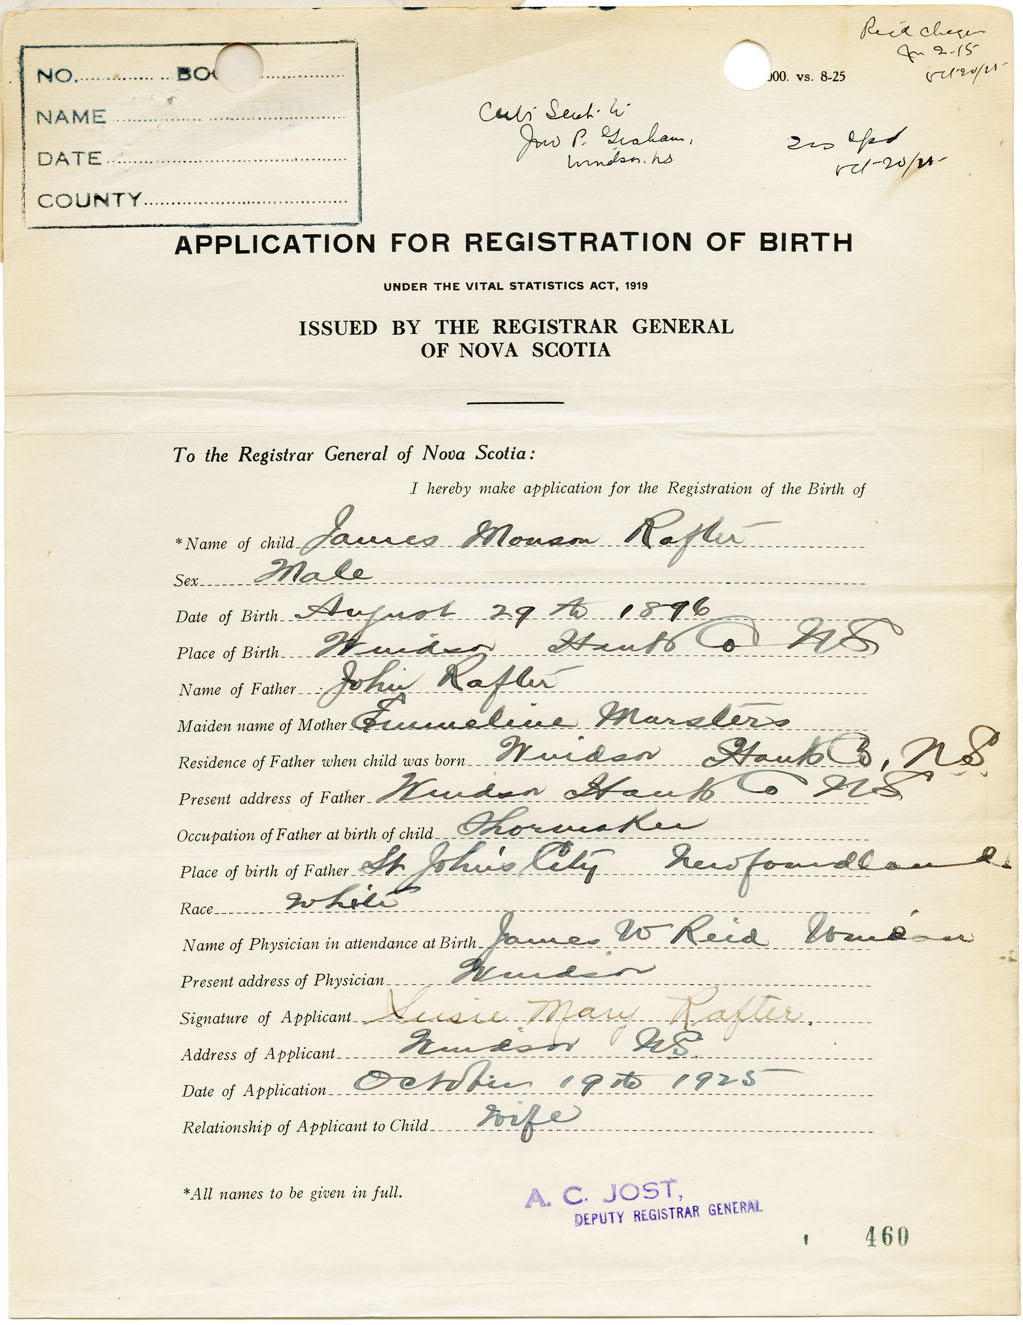 NO. BOO
NAME
DATE
COUNTY
000. vs. 8-25
Oct 20/25
Sent to
Jno P. Graham,
Windsor, NS
Oct-20/25
APPLICATION FOR REGISTRATION OF BIRTH
UNDER THE VITAL STATISTICS ACT, 1919
ISSUED BY THE REGISTRAR GENERAL
OF NOVA SCOTIA
To the Registrar General of Nova Scotia:
I hereby make application for the Registration of the Birth of
*Name of child James Monson Rafter
Sex Male
Date of Birth August 29th 1896
Place of Birth Windsor Hants Co NS
Name of Father John Rafter
Maiden name of Mother Emmeline Marsters
Residence of Father when child was born Windsor Hants Co, NS
Present address of Father Windsor Hants Co NS
Occupation of Father at birth of child Shoemaker
Place of birth of Father St John's City Newfoundland
Race White
Name of Physician in attendance at Birth James W Reid Windsor
Present address of Physician Windsor
Signature of Applicant Susie Mary Rafter.
Address of Applicant Windsor NS
Date of Application October 19th 1925
Relationship of Applicant to Child wife
*All names to be given in full.
A. C. JOST,
DEPUTY REGISTRAR GENERAL
460